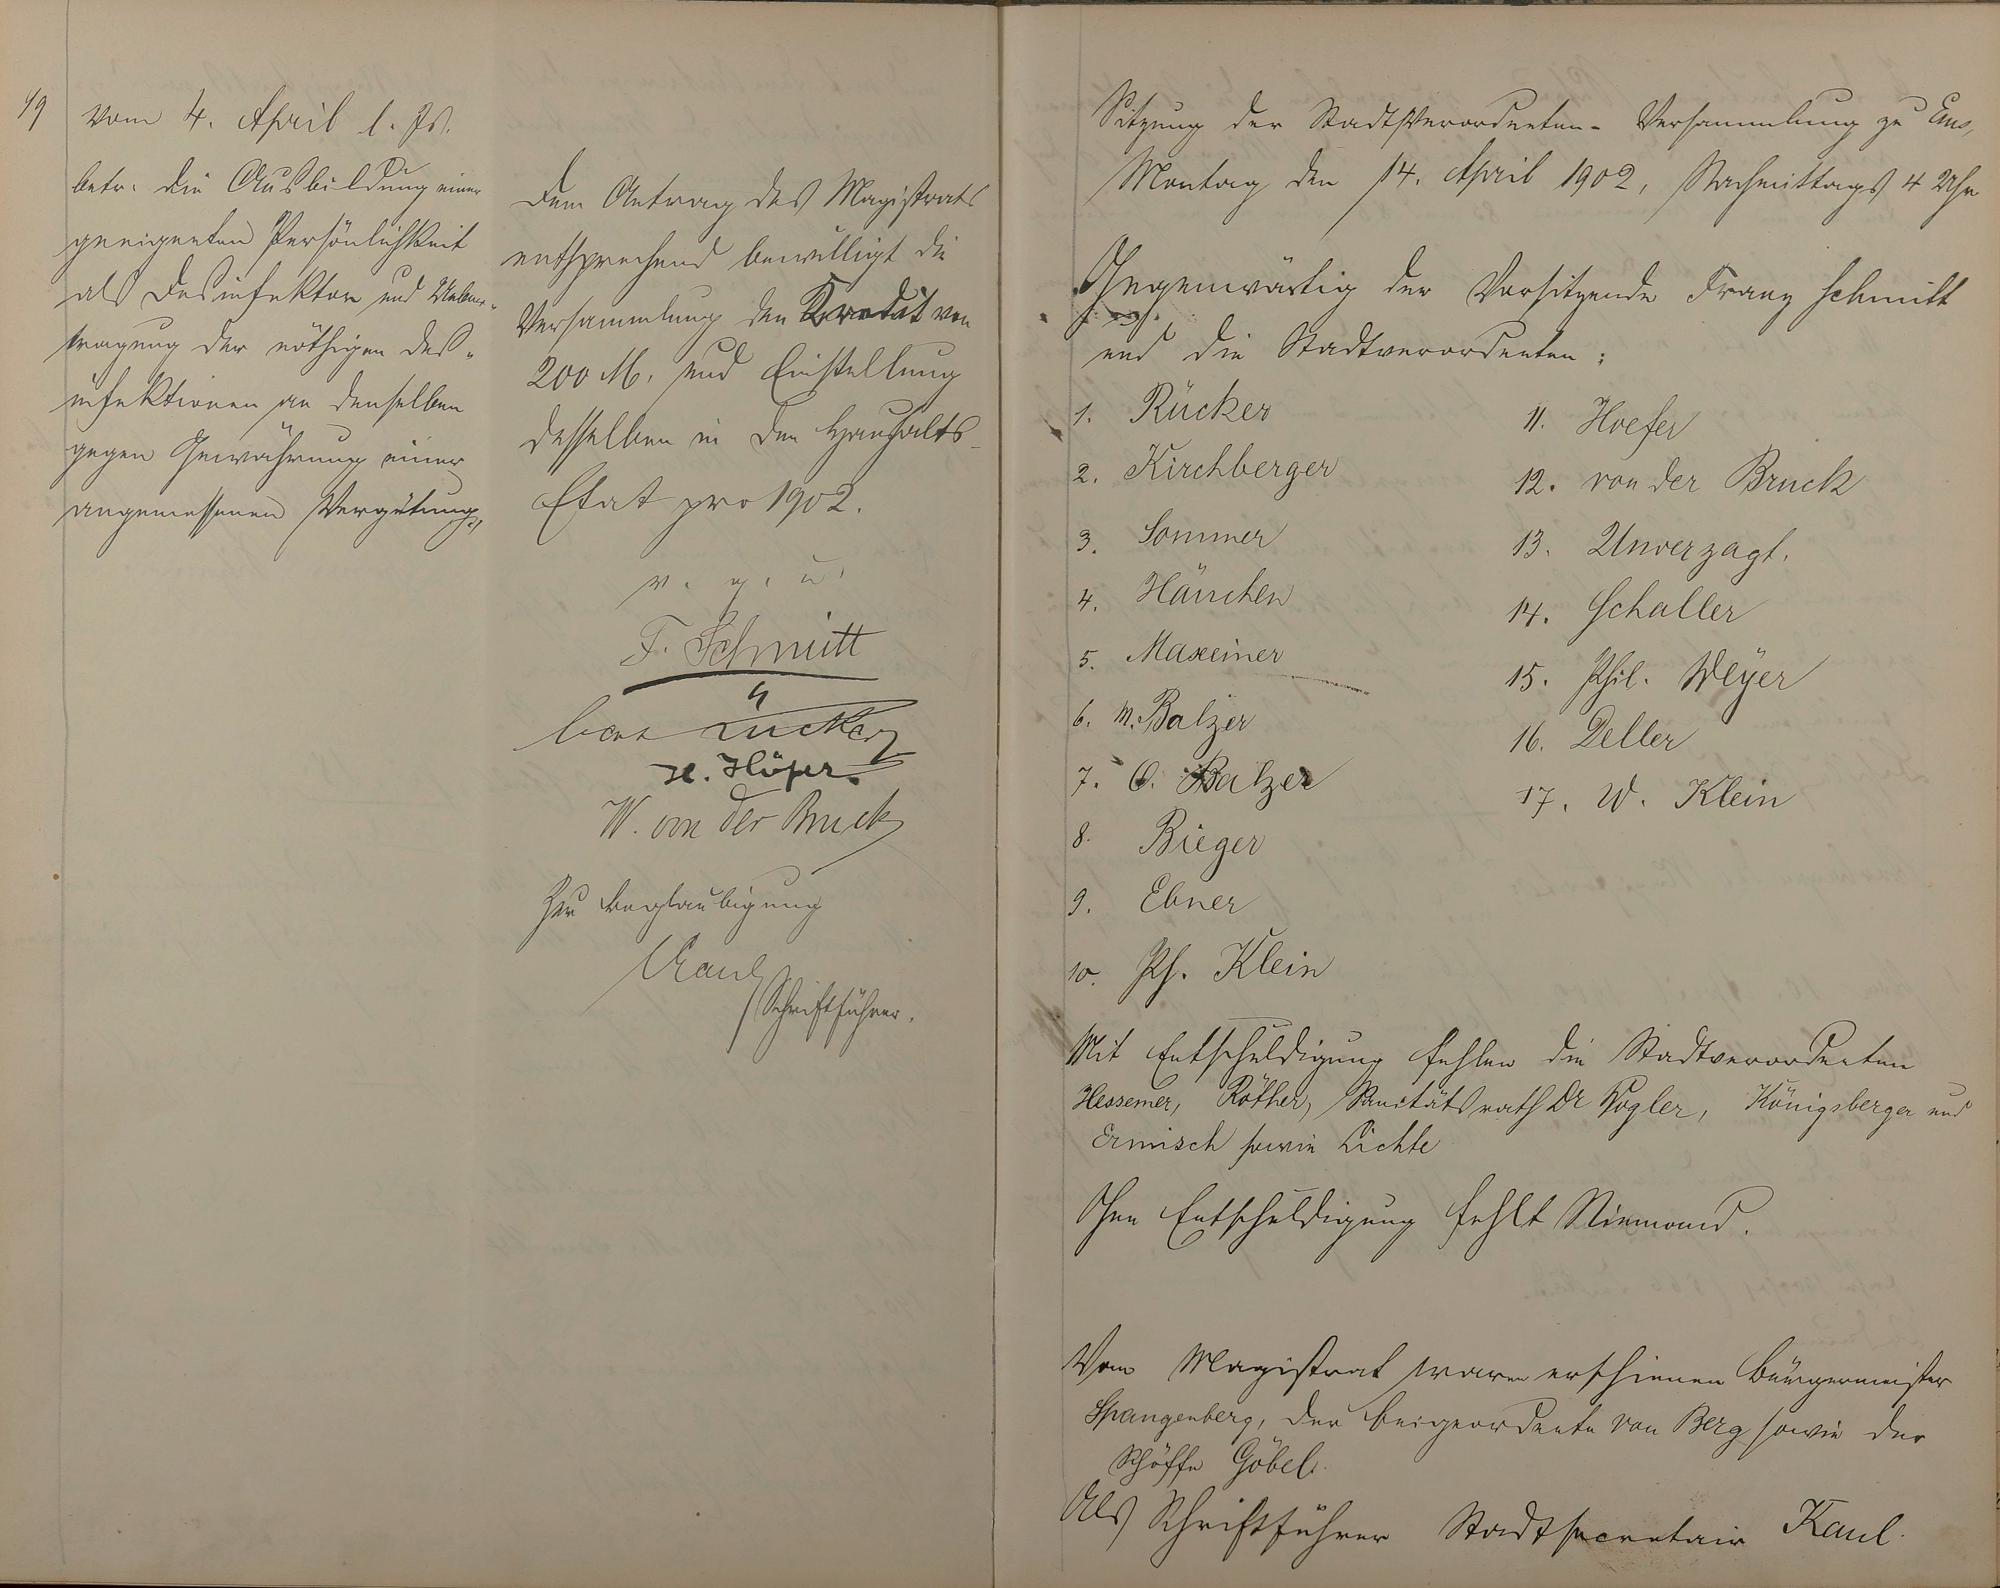 49
vom 4. April l. Js.
betr. die Ausbildung einer
geeigneten Persönlichkeit
als Desinfektor und Ueber-
tragung der nöthigen Des-
infektionen an denselben
gegen Gewährung einer
angemessenen Vergütung,
Dem Antrag des Magistrats
entsprechend bewilligt die
Versammlung den Kredit von
200 M. und Einstellung
desselben in den Haushalts-
Etat pro 1902.
v. g. u.
F. Schmitt
Rücker
H. Höfer.
W. von der Bruck
Zur Beglaubigung
Kaul
Schriftführer.
Sitzung der Stadtverordneten-Versammlung zu Ems,
Montag den 14. April 1902, Nachmittags 4 Uhr
Gegenwärtig der Vorsitzende Franz Schmitt
und die Stadtverordneten:
1. Rücker
2. Kirchberger
3. Sommer
4. Hänchen
5. Maxeiner
6. M. Balzer
7. O. Balzer
8. Bieger
9. Ebner
10. Ph. Klein
11. Hoefer
12. von der Bruck
13. Unverzagt.
14. Schaller
15. Phil. Weyer
16. Deller
17. W. Klein
Mit Entschuldigung fehlen die Stadtverordneten
Hessemer, Röther, Sanitätsrath Dr Vogler, Königsberger und
Ermisch sowie Lichte
Ohne Entschuldigung fehlt Niemand.
Vom Magistrat waren erschienen Bürgermeister
Spangenberg, der Beigeordnete von Berg sowie der
Schöffe Göbel.
Als Schriftführer Stadtsecretair Kaul.